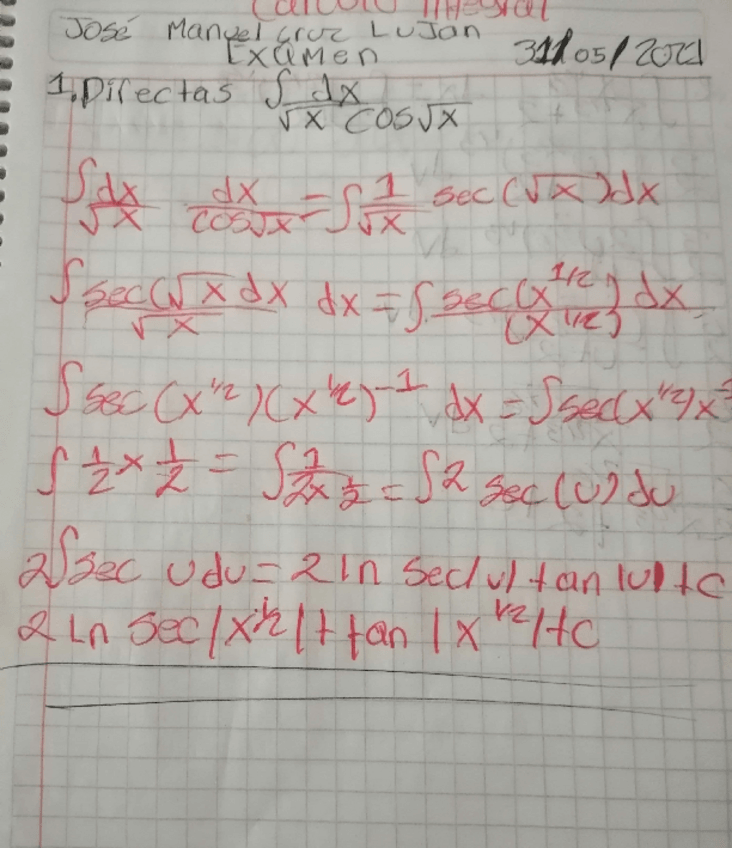 Calculo Integral
José Manuel Cruz Lujan
Examen 31/05/2021
1. Directas ∫ dx / √x cos√x
∫ dx/√x dx/cos√x = ∫ 1/√x sec(√x)dx
∫ sec(√x dx / √x dx = ∫ sec(x^1/2) / (x^1/2) dx
∫ sec(x^1/2)(x^1/2)^-1 dx = ∫sec(x^1/2)x^-
∫ 1/2 x 1/2 = ∫ 1/2x 1/2 = ∫2 sec(u) du
2∫sec u du = 2 ln sec|u| tan|u|+c
2 Ln sec|x^1/2|+ tan|x^1/2|+c